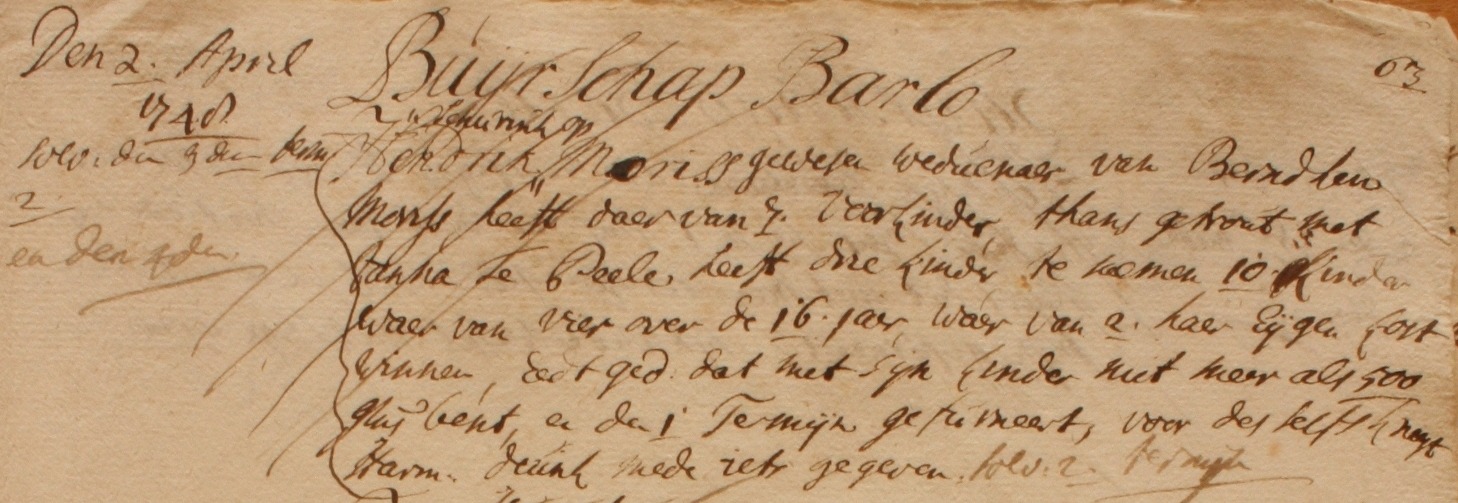 Den 2. April
1748
solv: den 3 den term
2
en den 4den
63
Buijrschap Barlo
Hendrik Moriss gewesen weduenaer van Berndken
Moriss heeft daer van 7. voorkinder, thans getrout met
Janna te Peele, heeft drie kinder te samen 10. kinder
waer van vier over de 16. jaer, waer van 2. haer Eijgen kost
winnen, eedt ged. dat met sijn kinder niet meer als 500
glns bent, en den 1 Termijn gefurneert, voor des selfs knegt
Harm. deunk mede iets gegeven. solv: 2. termijn